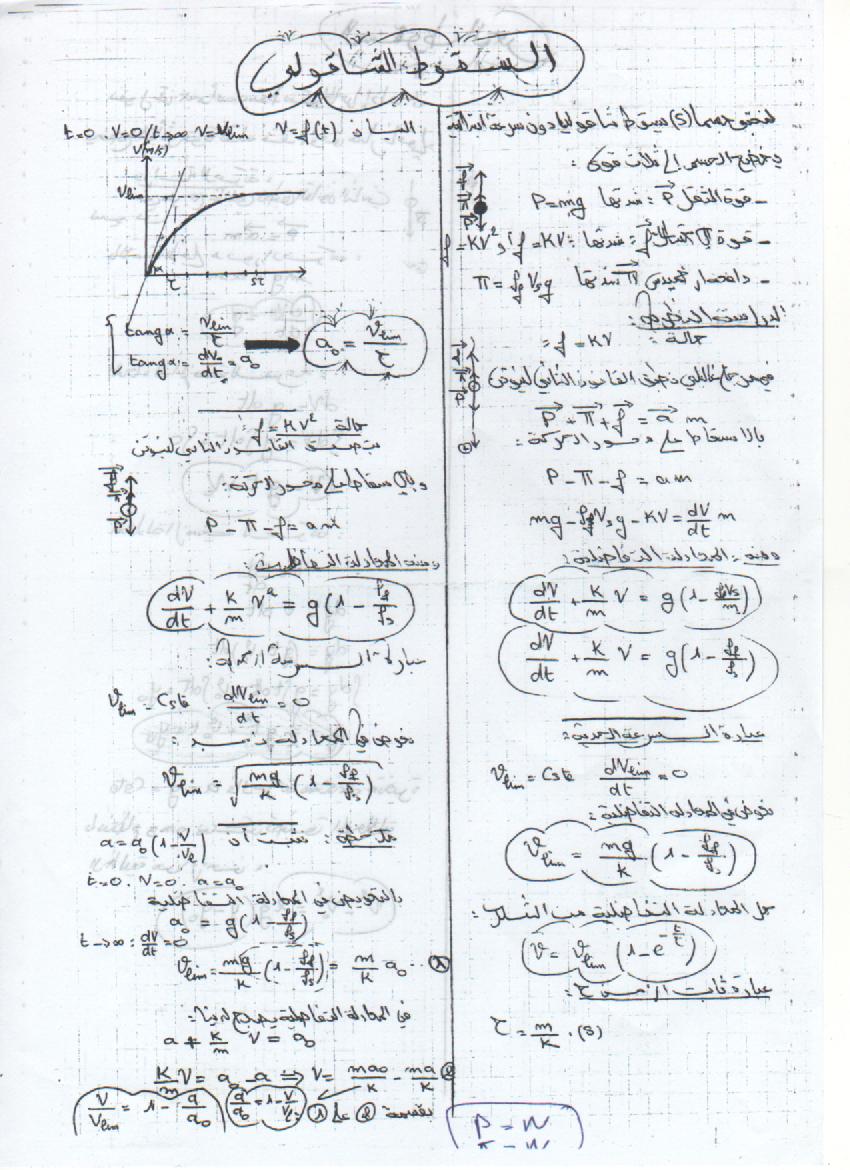 السقوط الشاقولي
يخضع الجسم إلى ثلاث قوى:
- قوة الثقل P⃗ : شدتها P=mg
f=KV² أو f=KV
Π = ρf Vs g
حالة: f = KV
P⃗ + Π⃗ + f⃗ = a⃗ m
بالإسقاط على محور الحركة:
P - Π - f = a m
mg - ρf Vs g - KV = dV/dt m
ومنه المعادلة التفاضلية:
dV/dt + k/m V = g(1 - ρf Vs/m)
dV/dt + k/m V = g(1 - ρf/ρs)
عبارة السرعة الحدية:
Vlim = Cste dVlim/dt = 0
نعوض في المعادلة التفاضلية:
Vlim = mg/k (1 - ρf/ρs)
حل المعادلة التفاضلية من الشكل:
V = Vlim (1 - e^(-t/τ))
عبارة ثابت الزمن τ:
τ = m/k . (s)
P = W
البيان V = f(t) t=0 V=0 / t→∞ V=Vlim
V(m/s)
Vlim
α τ 5τ
tang α = Vlim/τ
tang α = dV/dt = a₀
a₀ = Vlim/τ
حالة f = KV²
بتطبيق القانون الثاني لنيوتن
و بالإسقاط على محور الحركة:
P - Π - f = a m
ومنه المعادلة التفاضلية:
dV/dt + k/m V² = g(1 - ρf/ρs)
عبارة السرعة الحدية:
Vlim = Cste dVlim/dt = 0
نعوض في المعادلة
Vlim = √(mg/k (1 - ρf/ρs))
ملاحظة: نثبت أن a = a₀(1 - V/Vl)
t=0 . V=0 . a=a₀
بالتعويض في المعادلة التفاضلية
a₀ = g(1 - ρf/ρs)
t→∞ : dV/dt = 0
Vlim = mg/k (1 - ρf/ρs) = m/k a₀ ... ①
في المعادلة التفاضلية يصبح لدينا:
a + k/m V = a₀
K/m V = a₀ - a ⟹ V = ma₀/k - ma/k ②
بقسمة ② على ① a/a₀ = 1 - V/Vl
V/Vlim = 1 - a/a₀